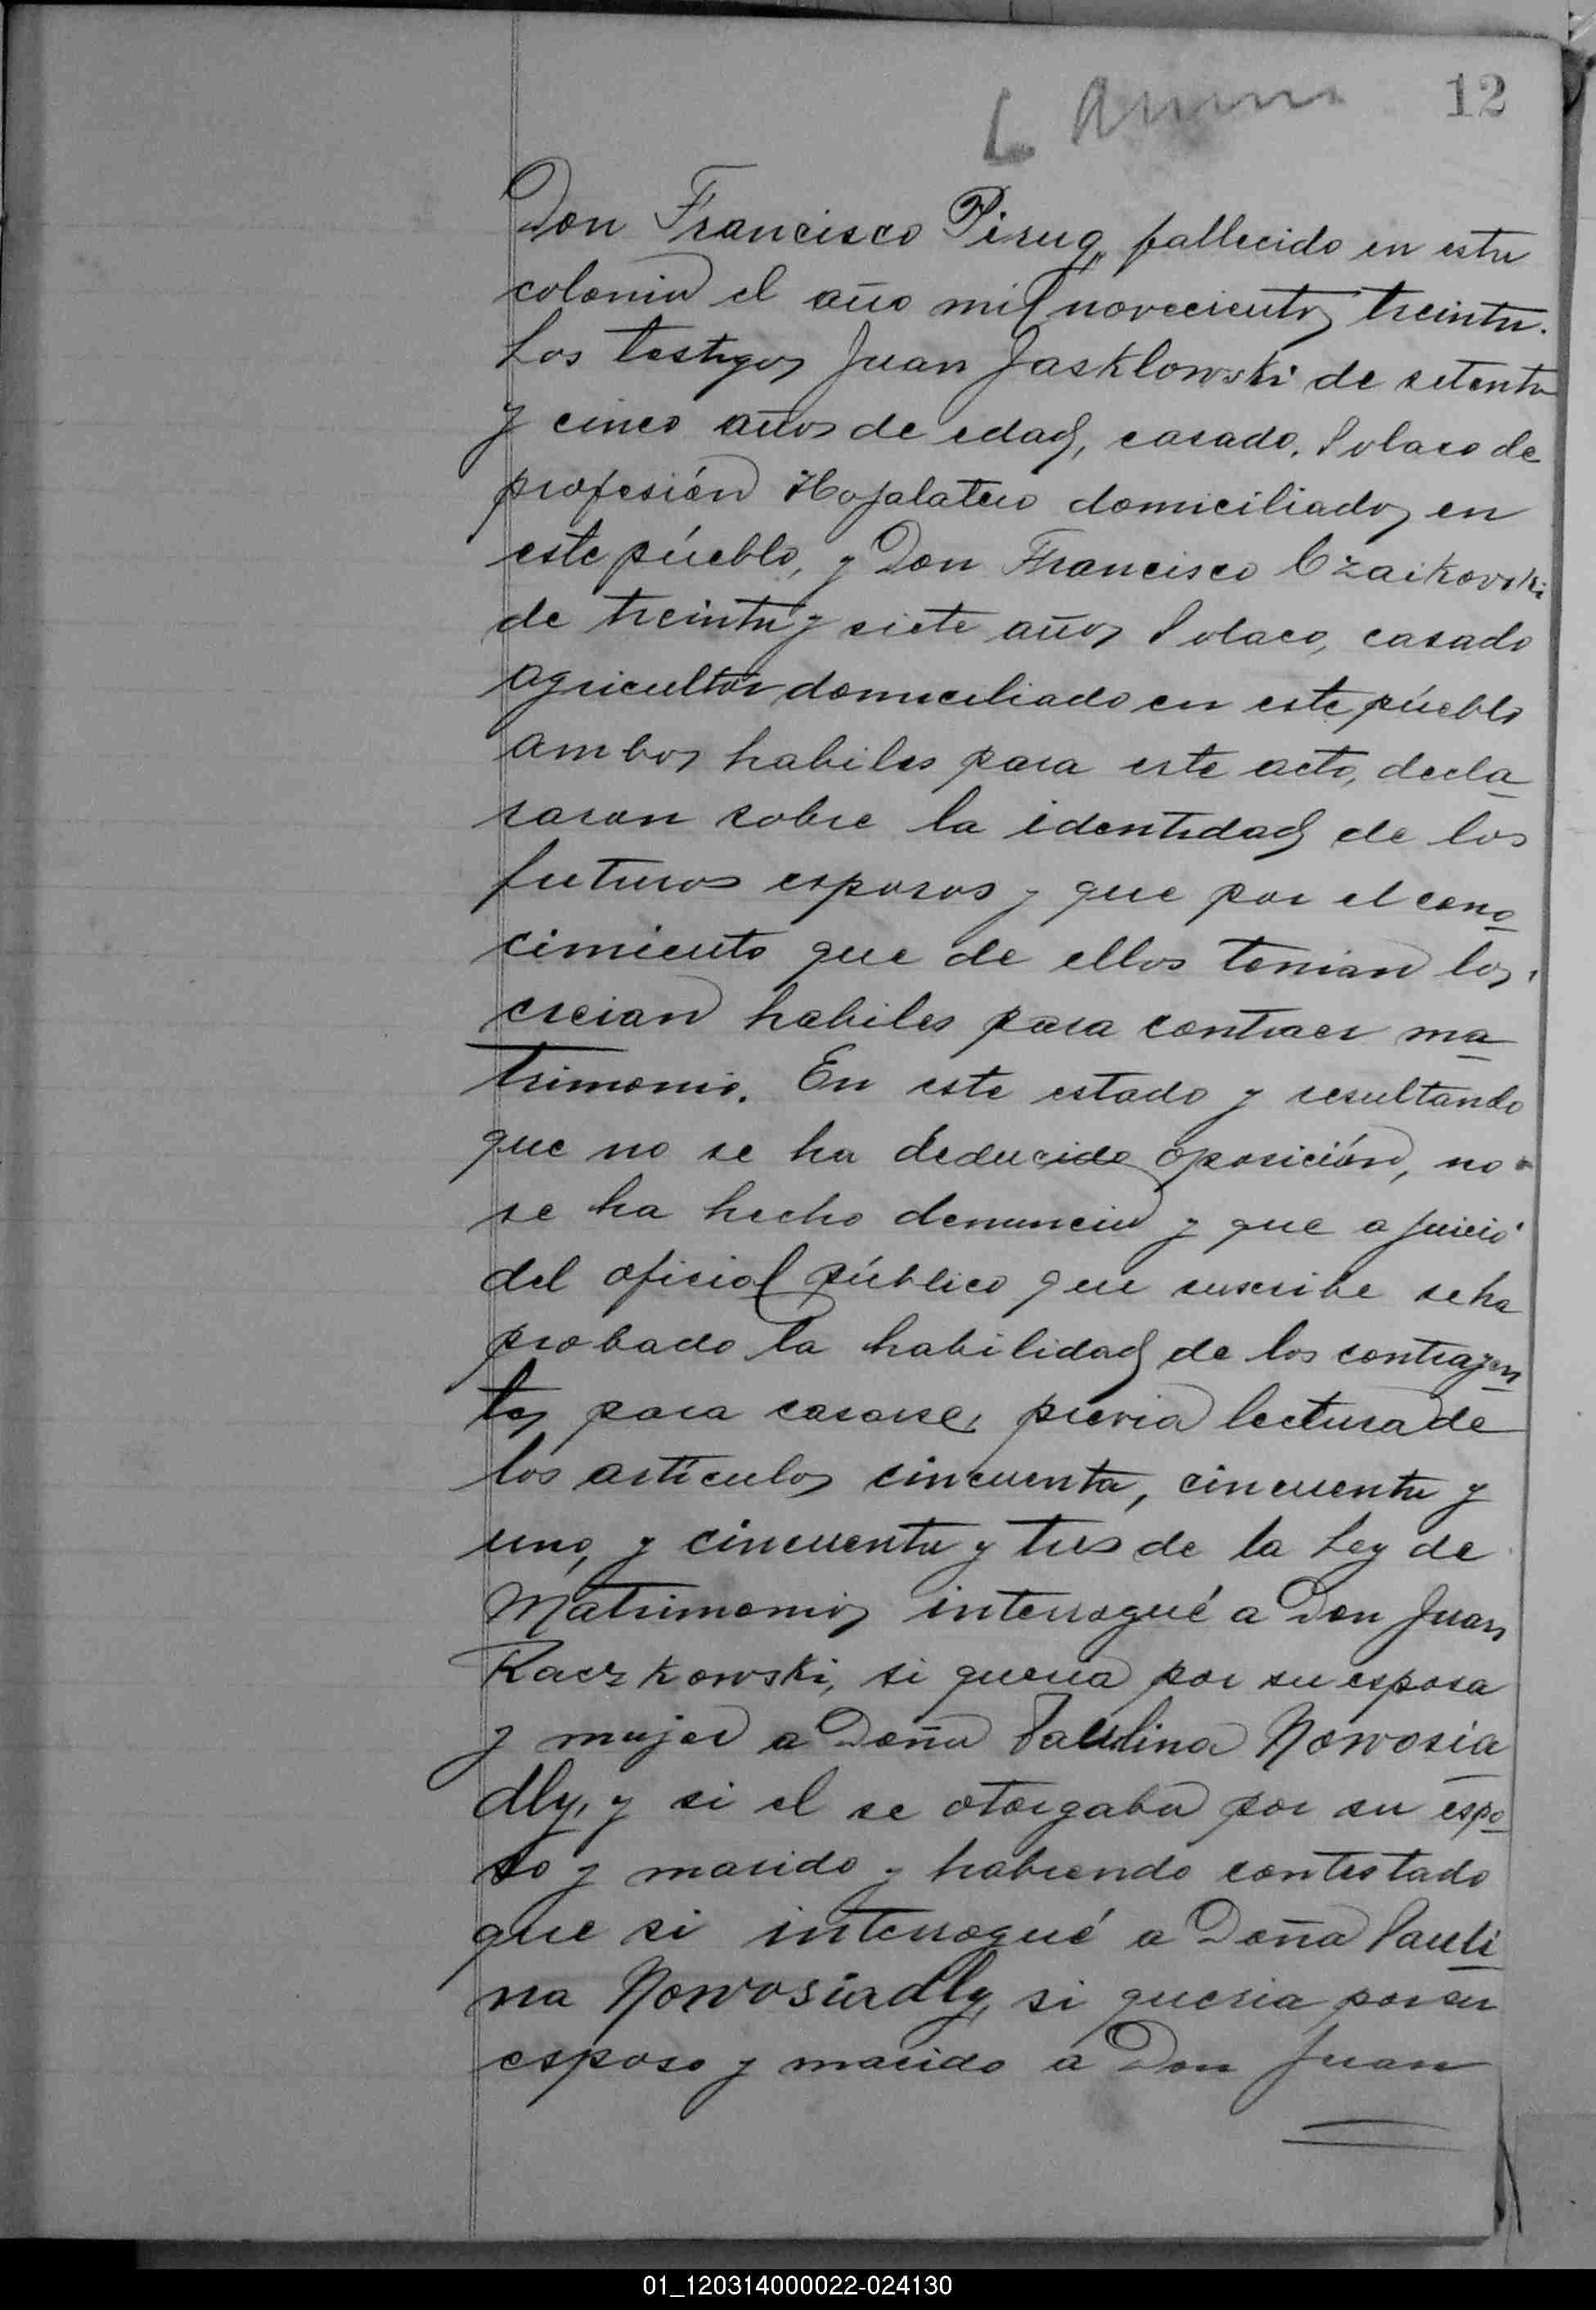 12
Don Francisco Pirug, fallecido en esta
colonia el año mil novecientos treinta.
Los testigos Juan Jasklowski de setenta
y cinco años de edad, casado, Polaco de
profesión Hojalatero domiciliados en
este púeblo, y Don Francisco Czaikovski
de treinta y siete años Polaco, casado
agricultor domiciliado en este púeblo
ambos habiles para este acto, decla
raron sobre la identidad de los
futuros esposos y que por el cono
cimiento que de ellos tenian los
creian habiles para contraer ma
trimonio. En este estado y resultando
que no se ha deducido oposición, no
se ha hecho denuncia y que a juicio
del oficial público que suscribe se ha
probado la habilidad de los contrayen
tes para casarse, previa lectura de
los artículos cincuenta, cincuenta y
uno, y cincuenta y tres de la Ley de
Matrimonios interrogué a Don Juan
Kaczkowski, si queria por su esposa
y mujer a Doña Paulina Nowosia
dly, y si el se otorgaba por su espo
so y marido y habiendo contestado
que si interrogué a Doña Pauli
na Nowosiadly, si queria por su
esposo y marido a Don Juan
01_120314000022-024130